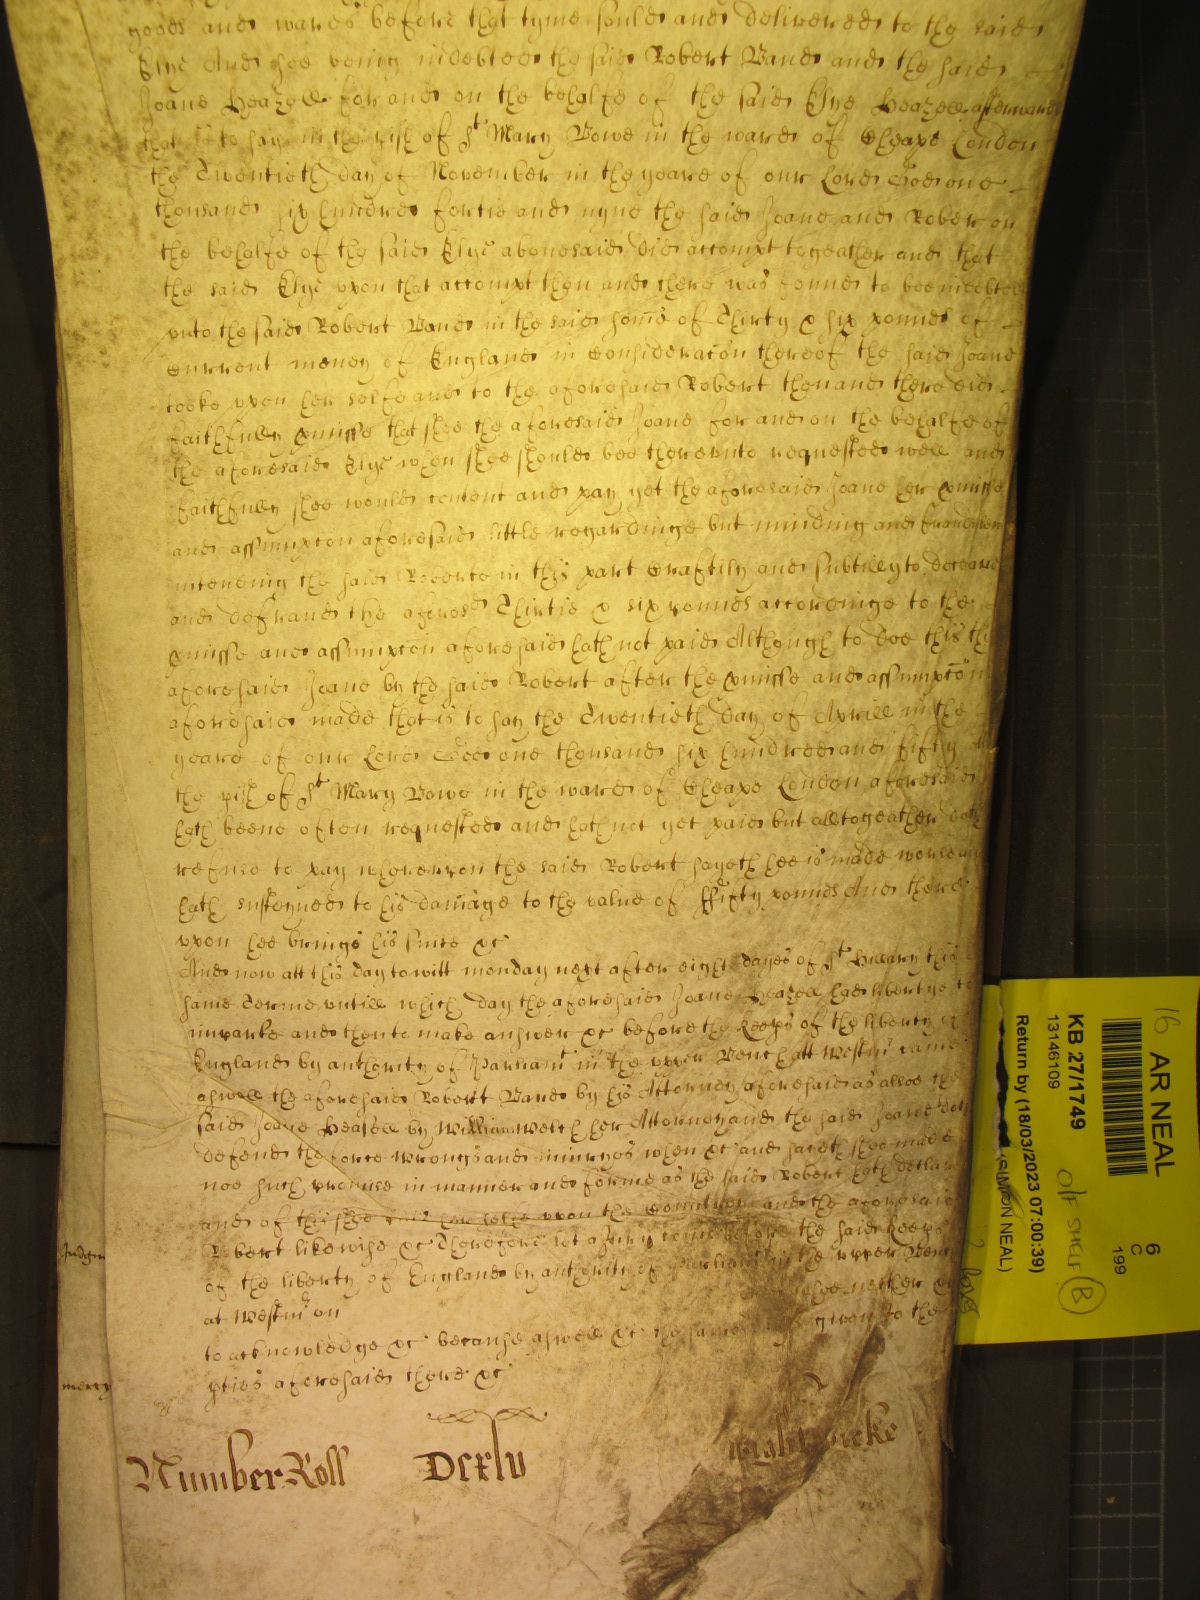 goods and wares before that tyme sould and delivered to the said
Elye And hee being indebted the said Robert Band and the said
Joane Heazell for and on the behalfe of the said Elye Heazell afterward
that is to say in the pish of St Mary Bowe in the ward of Cheape London
the Twentieth day of November in the yeare of our Lord God one
thousand six hundred fortie and nyne the said Joane and Robert on
the behalfe of the said Elye abovesaid did accompt togeather and that
the said Elye upon that accompt then and there was found to bee indebted
unto the said Robert Band in the said some of Thirty & six pounds of
current money of England in Consideracon thereof the said Joane
tooke upon her selfe and to the aforesaid Robert then and there did
faithfully pmisse that shee the aforesaid Joane for and on the behalfe of
the aforesaid Elye when shee should bee thereunto requested well and
faithfully shee would content and pay yet the aforesaid Joane her pmisse
and assumpcon aforesaid little regardinge but minding and fraudulently
intending the said Roberte in this part Craftily and subtilly to deceave
and defraud the aforesd Thirtie & six pounds accordinge to the
pmisse and assumpcon aforesaid hath not paid Although to doe this the
aforesaid Joane by the said Robert after the pmisse and assumpcon
aforesaid made that is to say the Twentieth day of Aprill in the
yeare of our Lord God one thousand six hundred and fifty att
the pish of St Mary Bowe in the ward of Cheape London aforesaid
hath beene often requested and hath not yet paid but alltogeather doth
refuse to pay whereupon the said Robert sayeth hee is made worse and
hath susteyned to his damage to the value of ffifty pounds And there
upon hee brings his suite &c
And now att this day to witt monday next after eight dayes of St Hillary this
same Terme untill which day the aforesaid Joane Heazell had libertye to
imparle and then to make answer &c before the Keeps of the liberty of
England by authority of Parliamt in the upper Bench att Westm came
aswell the aforesaid Robert Band by his Attorney aforesaid as alsoe the
said Joane Heasell by William Welch her Attorney and the said Joane doth
defend the force wrongs and iniuryes when &c and saieth shee made
noe such promise in manner and forme as the said Robert hath declared
and of this shee puts her selfe upon the Countrey and the aforesaid
Robert likewise &c Therefore let a Jury come before the said Keeps
of the liberty of England by authority of Parliamt in the upper Bench
at Westm on whoe neither &c
to acknowledge &c because aswell &c the same given to the
pties aforesaid there &c
mercy
Number Roll DCxlv Wightwicke
16 AR NEAL
6
C
199
KB 27/1749
13146109
O/F SHELF B
Return by (18/03/2023 07:00:39)
(SIMON NEAL)